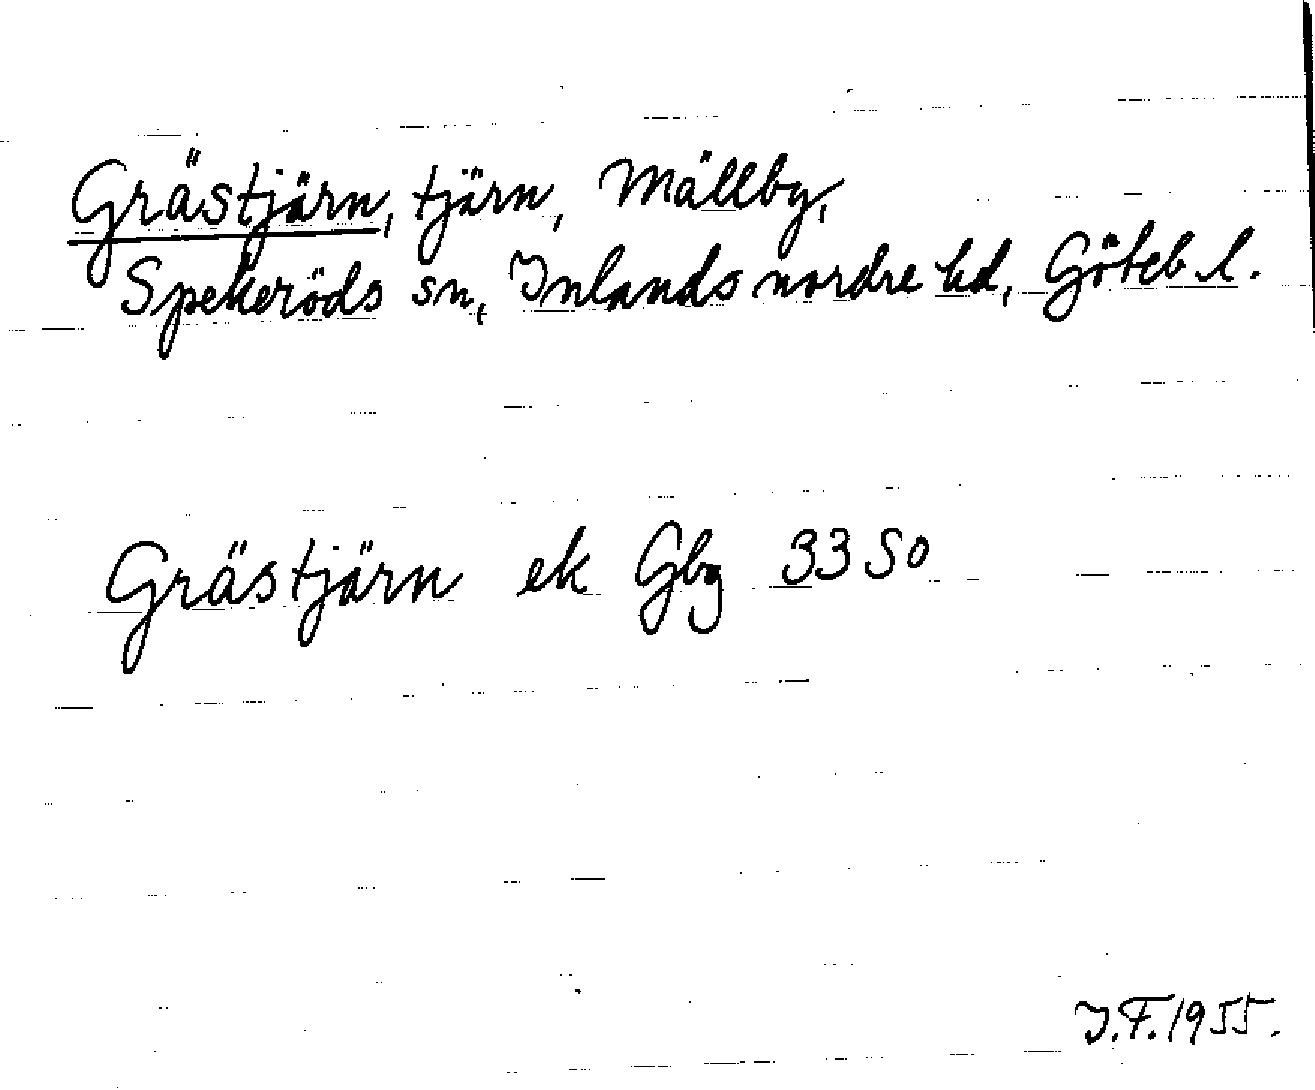 Grästjärn, tjärn, Mällby,
Spekeröds sn, Inlands nordre hd, Göteb. l.
Grästjärn ek Gbg 3350
J.F. 1955.